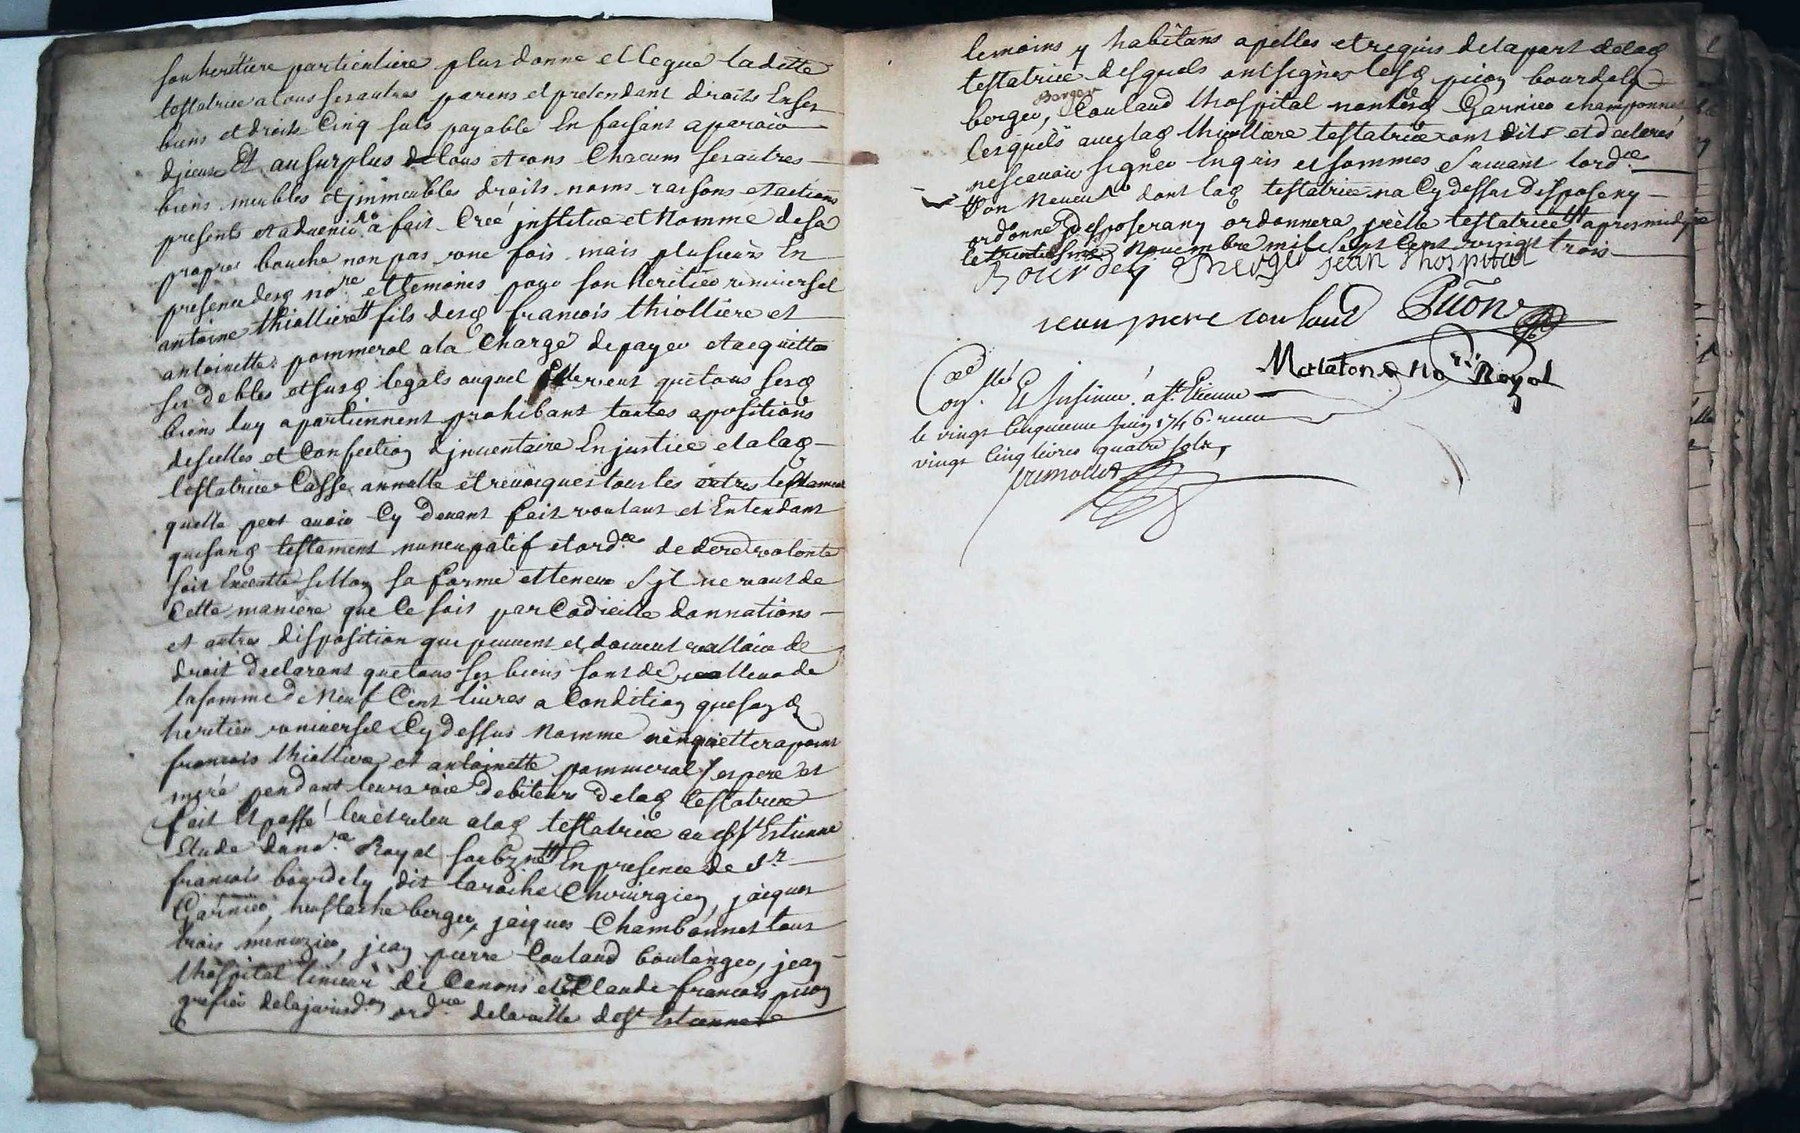 son heritiere particuliere plus donne et legue laditte
testatrice a tous ses autres parens et pretendant droits En ses
biens et droits Cinq sols payable En faisant aparoir
d'jceux Et au surplus de tous et uns Chacuns ses autres
biens meubles et jmmeubles droits noms raisons et actions
presents et advenir a fait Créé institué et Nommé de sa
propre bouche non pas une fois mais plusieurs En
presence desd nore et temoins pour son heritier universel
antoine thiolliere fils desd francois thiolliere et
antoinette pommerol a la Charge de payer et acquitter
ses debtes et susd legats auquel Elle veut que tous sesd
biens luy apartiennent prohibant toutes apositions
de scellés et Confection d'jnventaire En justice et lad
testatrice Casse annulle et revoque tous les autres testament
quelle peut avoir Cy devant fait voulant et Entendant
que sond testament nuncupatif et ordce de dere volonté
soit Executté sellon sa forme et teneur S'jl ne vaut de
Cette maniere que Ce soit par Codicille donnations
et autres disposition qui peuvent et doivent valloir de
droit declarant que tous ses biens sont de valleur de
la somme de Neuf Cent livres a Condition que sond
heritier universel Cy dessus Nommé n'inquiettera point
francois thiolliere et antoinette pommerol ses pere et
mere pendant leurs vie debiteurs de lad testatrice
fait Et passé leu et releu a lad testatrice aud St Estienne
Etude du nore Royal soubzné En presence de sr
francois bourdely dit laroche Chirurgien, jacques
Garnier, heustache berger, jacques Chambonnet tous
trois menuzier, jean pierre Couland boulanger, jean
thospital limeur de Canons et Claude francois picon
grefier de la jurisdon ordre de la ville de St Estienne
temoins y habitans apelles et requis de la part de lad
testatrice desquels ont signés lesd picon bourdely
Berger
berger, Couland thospital non lesd Garnier champonnet
lesquels avec lad thiolliere testatrice ont dits et declarés
ne scavoir signer Enquis et sommés suivant lordce
son Neveu dont lad testatrice na Cy dessus disposé ny
ordonné disposera ny ordonnera
le Novembre mil sept Cent vingt trois
Bourdely Berger jean thospital
jean piere couland Picon
Malaton No re Royal
Conllé Et jnsinué a St Etienne
le vingt Cinquieme juin 1746 receu
vingt Cinq livres quatre sols